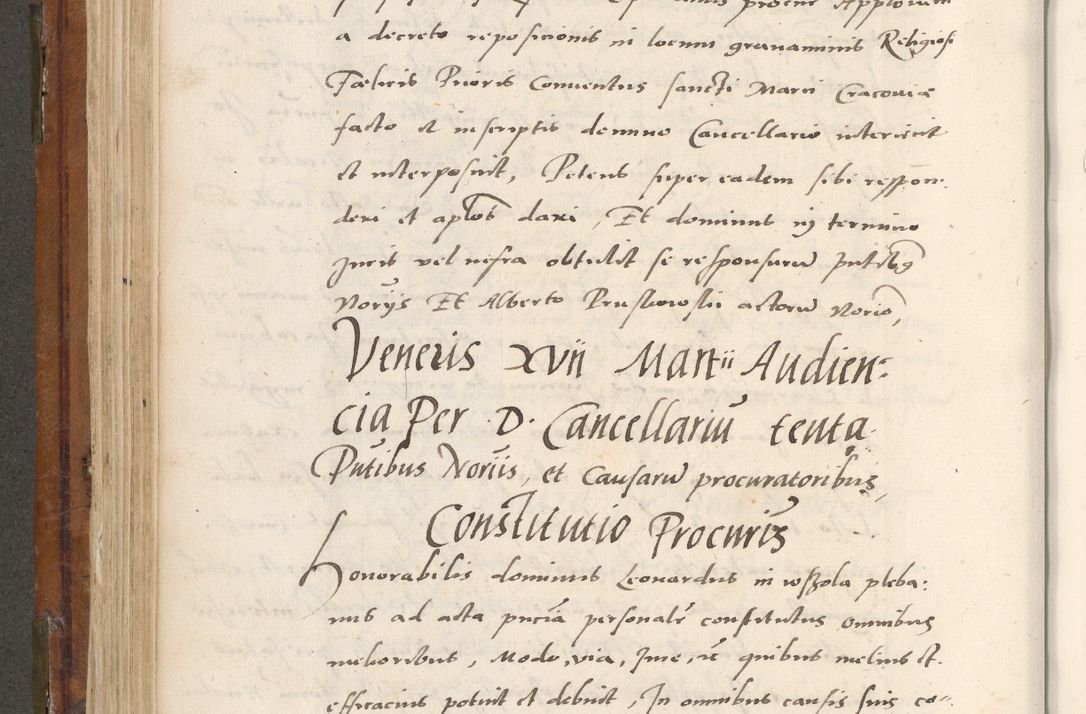 a decreto reposicionis in locum grauaminis Religiosi
Fælicis Prioris Conuentus sancti Marci Cracouiæ
facto et in scriptis domino Cancellario interiecit
et interposuit, Petens super eadem sibi respon-
deri et aplos dari, Et dominus in termino
Juris vel infra obtulit se responsurum Pntibus
Norijs Et Alberto Pruskowski actorum Norio,
Veneris xvii Martii Audien:
cia Per D. Cancellariū tenta
Pntibus Noriis, et Causarū procuratoribus,
Constitutio Procuris
Honorabilis dominus Leonardus in wszola pleba:
nus ad acta pnciā personalr constitutus omnibus
melioribus, Modo, via, Jure, rc quibus melius et
efficacius potuit et debuit, In omnibus causis suis ca-